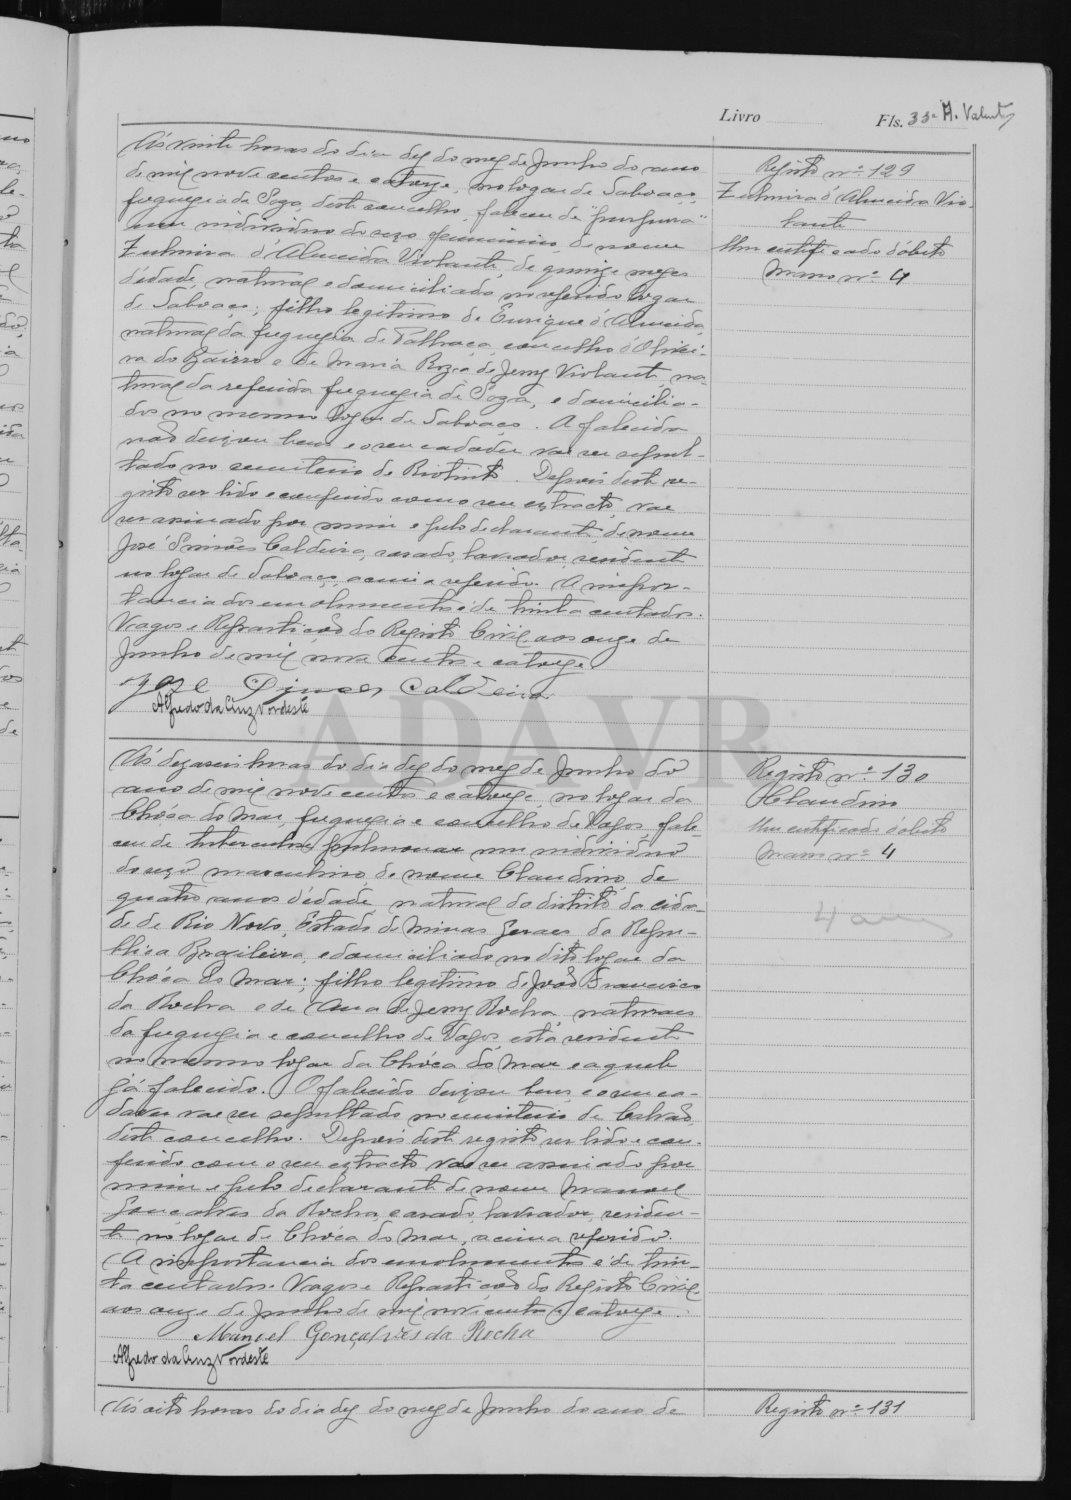 Livro
Fls. 33
A. Valente
Registo nº 129
Zulmira d'Almeida Vio-
lante
Um certificado d'óbito
Maço nº 4
Ás vinte horas do dia dez do mez de Junho do anno
de mil nove centos e catorze, no logar de Salvaço,
freguezia de Soza, deste concelho, faleceu de "purpura"
um individuo do sexo femenino, de nome
Zulmira d'Almeida Violante, de quinze mezes
d'edade, natural e domiciliado no referido logar
de Salvaço; filho legitimo de Eurique d'Almeida,
natural da freguezia de Palhaça, concelho d'Olivei-
ra do Bairro e de Maria Roza de Jezus Violante, na-
tural da referida freguezia de Soza, e domicilia-
dos no mesmo logar de Salvaço. A falecida
não deixou bens e o seu cadaver vae ser sepul-
tado no cemiterio de Riotinto. Depois deste re-
gisto ser lido e conferido com o seu extracto, vae
ser assinado por mim e pelo declarante, de nome
José Simões Caldeira, casado, lavrador, residente
no logar de Salvaço, acima referido. A impor-
tancia dos emolumentos é de trinta centavos.
Vagos e Repartição do Registo Civil, aos onze de
Junho de mil nove centos e catorze.
José Simões Caldeira
Alfredo da Cruz Nordeste
ADAVR
Registo nº 130
Claudino
Um certificado d'óbito
Maço nº 4
4 annos
Ás dezaseis horas do dia dez do mez de Junho do
ano de mil nove centos e catorze, no logar da
Chóca do Mar, freguezia e concelho de Vagos, fale-
ceu de tuberculose pulmonar um individuo
do sexo masculino, de nome Claudino, de
quatro anos d'edade, natural do distrito da cida-
de de Rio Novo, Estado de Minas Geraes da Repu-
blica Brazileira, e domiciliado no dito logar da
Chóca do Mar; filho legitimo de João Francisco
da Rocha e de Ana de Jezus Rocha, naturaes
da freguezia e concelho de Vagos, esta residente
no mesmo logar da Chóca do Mar e aquele
já falecido. O falecido deixou bens e o seu ca-
daver vae ser sepultado no cemiterio de Calvão,
deste concelho. Depois deste registo ser lido e con-
ferido com o seu extracto vae ser assinado por
mim e pelo declarante de nome Manoel
Gonçalves da Rocha, casado, lavrador, residen-
te no logar de Chóca do Mar, acima referido.
A importancia dos emolumentos é de trin-
ta centavos. Vagos e Repartição do Registo Civil,
aos onze de Junho de mil nove centos e catorze.
Manoel Gonçalves da Rocha
Alfredo da Cruz Nordeste
Registo nº 131
Ás oito horas do dia dez do mez de Junho do ano de